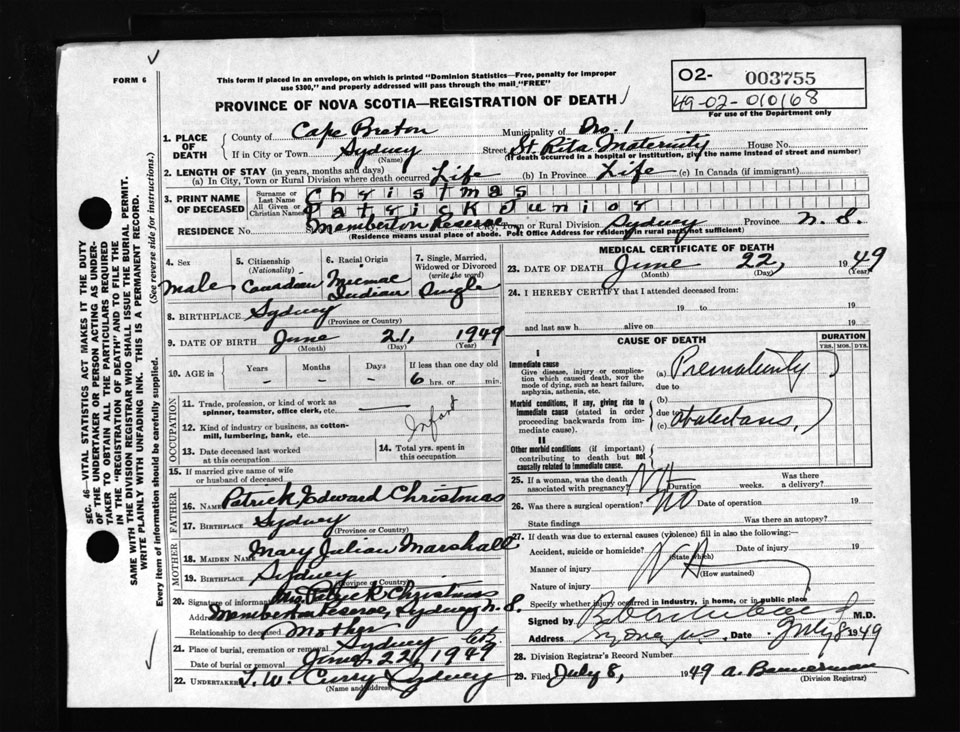 FORM 6
This form if placed in an envelope, on which is printed "Dominion Statistics—Free, penalty for improper
use $300," and properly addressed will pass through the mail "FREE"
PROVINCE OF NOVA SCOTIA—REGISTRATION OF DEATH
O2- 003755
49-02-010168
For use of the Department only
1. PLACE OF DEATH
County of Cape Breton Municipality of Dro. 1
If in City or Town Sydney (Name) Street St Rita Maternity House No.
(If death occurred in a hospital or institution, give the name instead of street and number)
2. LENGTH OF STAY (in years, months and days)
(a) In City, Town or Rural Division where death occurred Life (b) In Province Life (c) In Canada (if immigrant)
3. PRINT NAME OF DECEASED
Surname or Last Name Christmas
All Given or Christian Names Patrick Junior
RESIDENCE No. Memberton Reserve City, Town or Rural Division Sydney Province N. S.
(Residence means usual place of abode. Post Office Address for residents in rural parts not sufficient)
4. Sex
Male
5. Citizenship (Nationality)
Canadian
6. Racial Origin
Micmac Indian
7. Single, Married, Widowed or Divorced (write the word)
Single
8. BIRTHPLACE Sydney
(Province or Country)
9. DATE OF BIRTH June 21, 1949
(Month) (Day) (Year)
10. AGE in Years Months Days If less than one day old
- - - 6 hrs. or min.
OCCUPATION
11. Trade, profession, or kind of work as spinner, teamster, office clerk, etc.
12. Kind of industry or business, as cotton-mill, lumbering, bank, etc. Infant
13. Date deceased last worked at this occupation
14. Total yrs. spent in this occupation
15. If married give name of wife or husband of deceased
FATHER
16. Name Patrick Edward Christmas
17. BIRTHPLACE Sydney
(Province or Country)
MOTHER
18. MAIDEN NAME Mary Julian Marshall
19. BIRTHPLACE Sydney
(Province or Country)
20. Signature of informant Mrs. Patrick Christmas
Memberton Reserve, Sydney N. S.
Relationship to deceased Mother
21. Place of burial, cremation or removal Sydney
Date of burial or removal June 22, 1949
22. UNDERTAKER T. W. Curry Sydney
(Name and address)
MEDICAL CERTIFICATE OF DEATH
23. DATE OF DEATH June 22, 1949
(Month) (Day) (Year)
24. I HEREBY CERTIFY that I attended deceased from:
19 to 19
and last saw h alive on 19
CAUSE OF DEATH
DURATION
YRS. MOS. DYS.
I
Immediate cause
Give disease, injury or complication which caused death, NOT the mode of dying, such as heart failure, asphyxia, asthenia, etc.
(a) Prematurity
due to
Morbid conditions, if any, giving rise to immediate cause (stated in order proceeding backwards from immediate cause).
(b)
due to
(c)
II
Other morbid conditions (if important) contributing to death but not causally related to immediate cause.
25. If a woman, was the death associated with pregnancy? NA Duration weeks. Was there a delivery?
26. Was there a surgical operation? No Date of operation 19
State findings Was there an autopsy?
27. If death was due to external causes (violence) fill in also the following:
Accident, suicide or homicide? (State which) Date of injury 19
Manner of injury NA (How sustained)
Nature of injury
Specify whether injury occurred in industry, in home, or in public place
Signed by M.D.
Address Sydney NS, Date July 8 1949
28. Division Registrar's Record Number
29. Filed July 8, 1949 A. Bannerman
(Division Registrar)
SEC. 46—VITAL STATISTICS ACT MAKES IT THE DUTY
OF THE UNDERTAKER OR PERSON ACTING AS UNDER-
TAKER TO OBTAIN ALL THE PARTICULARS REQUIRED
IN THE "REGISTRATION OF DEATH" AND TO FILE THE
SAME WITH THE DIVISION REGISTRAR WHO SHALL ISSUE THE BURIAL PERMIT.
WRITE PLAINLY WITH UNFADING INK. THIS IS A PERMANENT RECORD.
Every item of information should be carefully supplied. (See reverse side for instructions.)